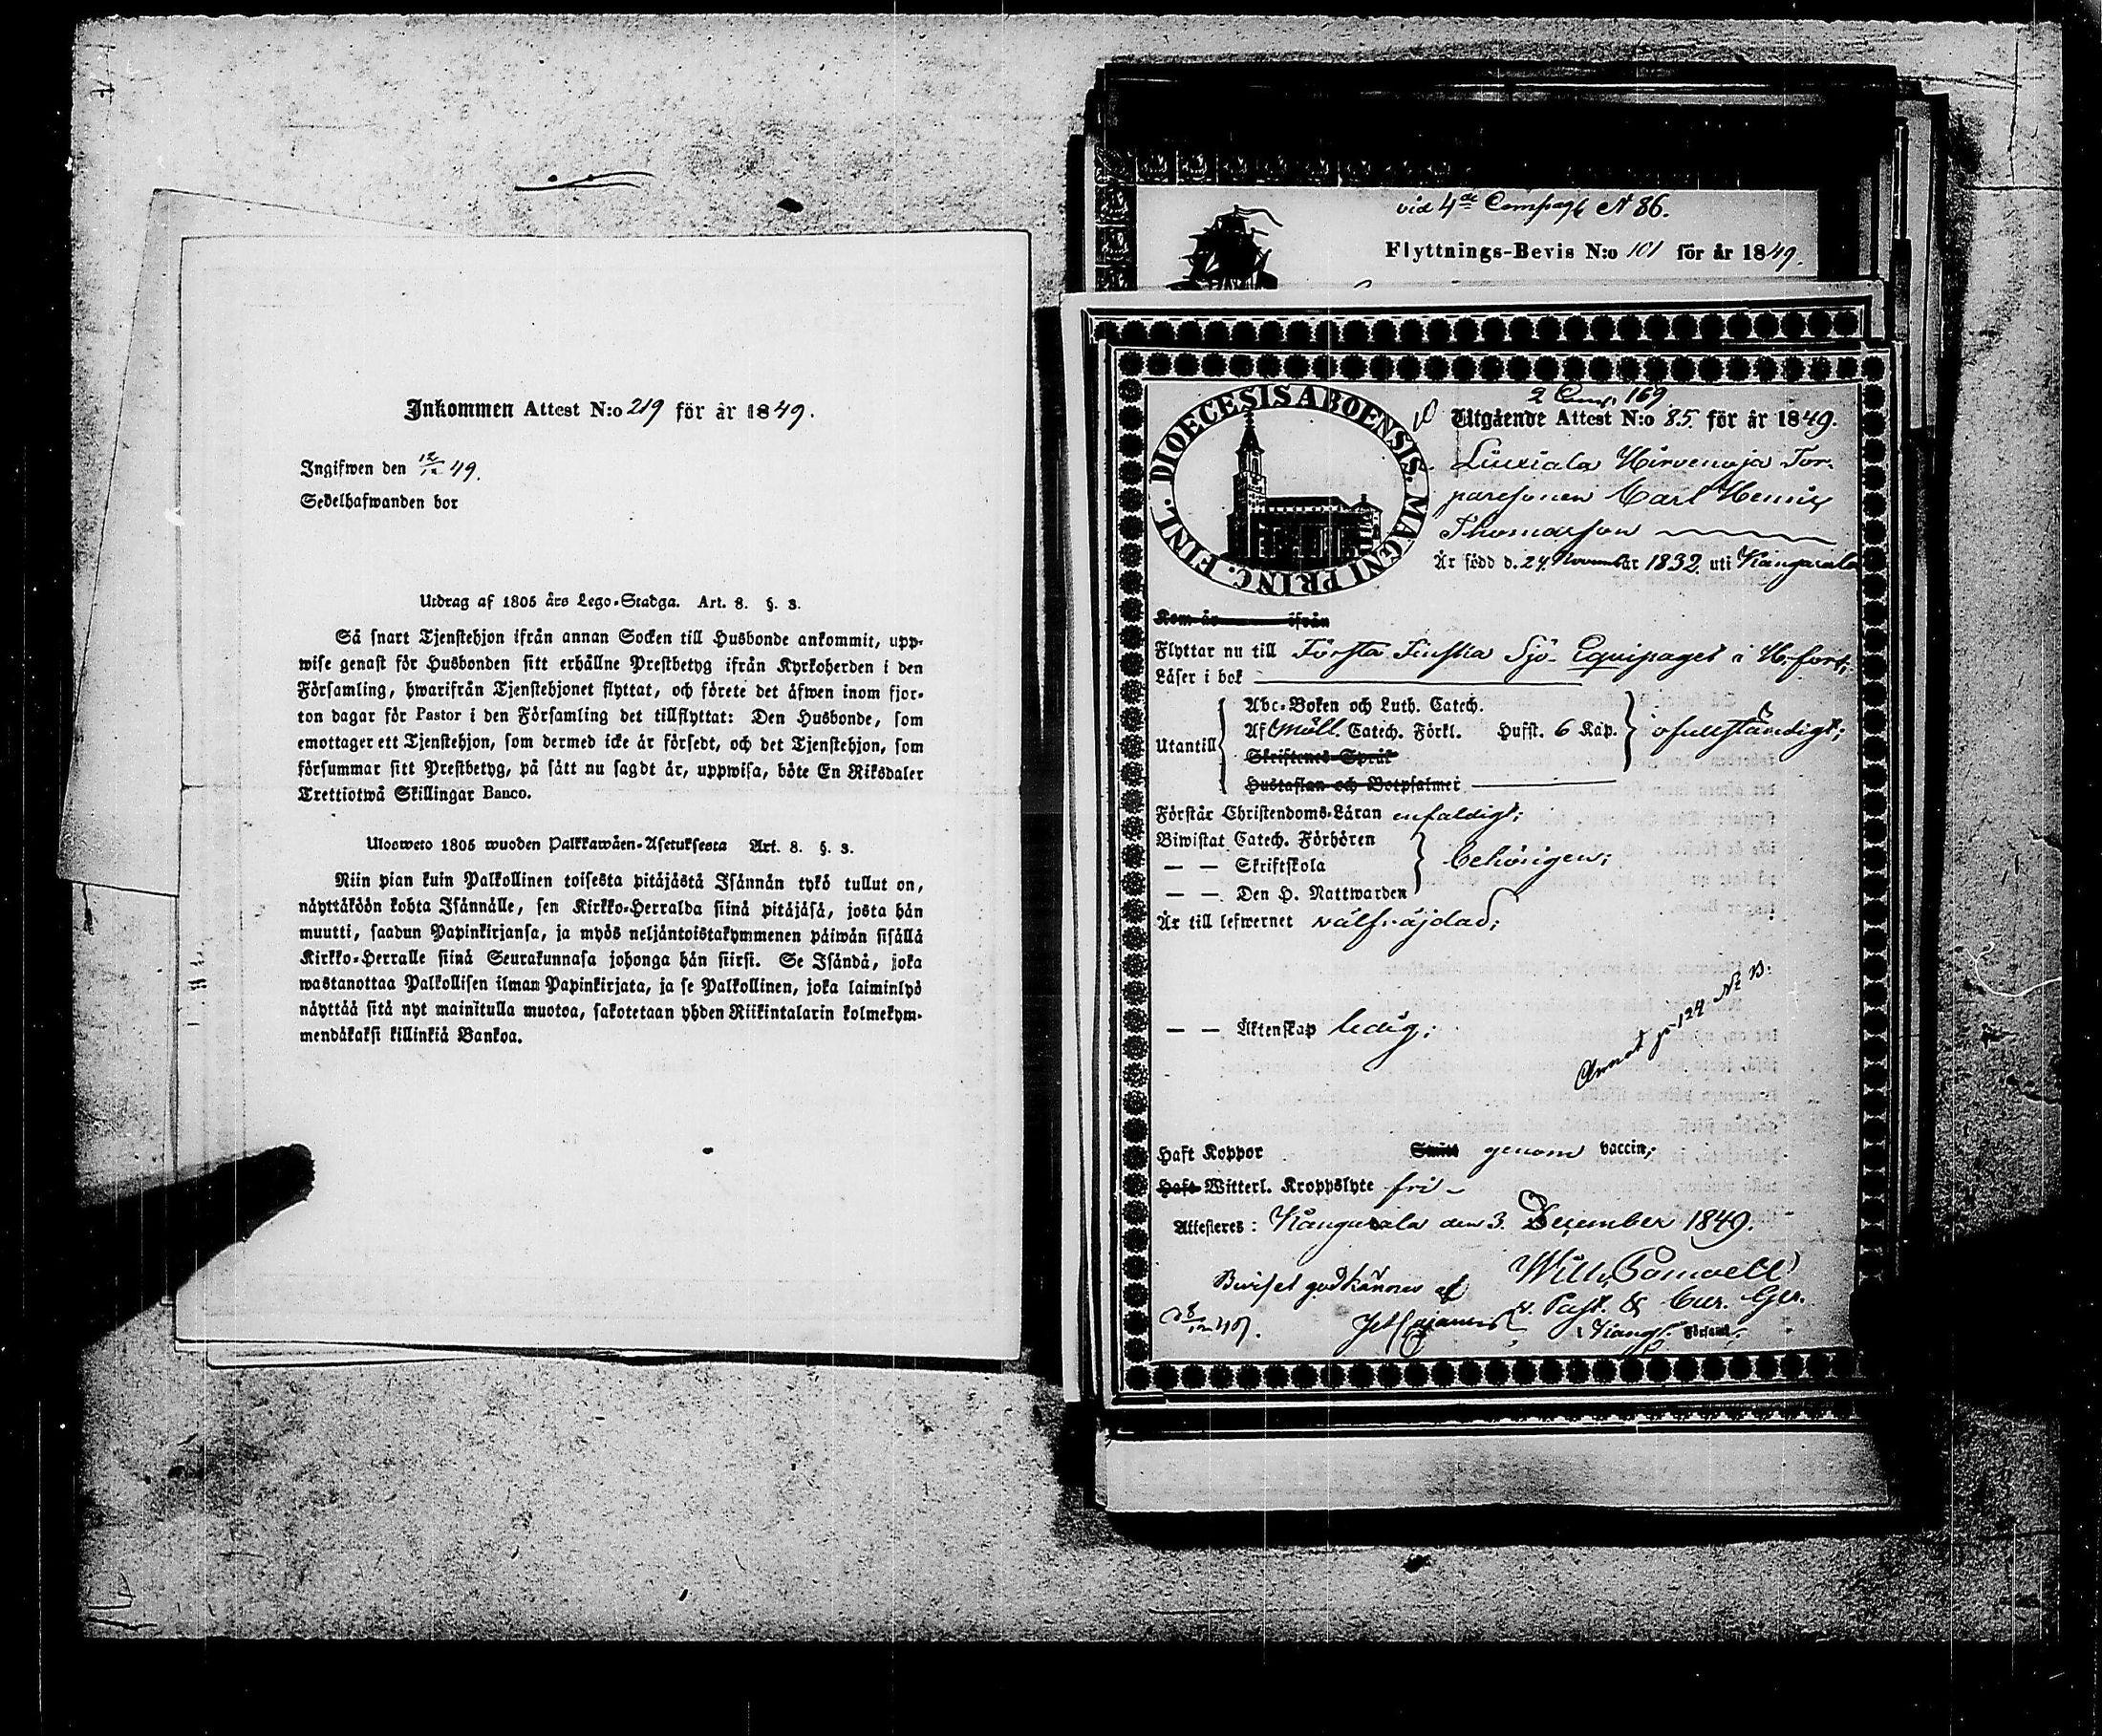 Inkommen Attest N:o 219 för år 1849.
Ingifwen den 12/12 49.
Sedelhafwanden bor
Utdrag af 1805 års Lego-Stadga. Art. 8. §. 3.
Så snart Tjenstehjon ifrån annan Socken till Husbonde ankommit, upp-
wise genast för Husbonden sitt erhållne Prestbetyg ifrån Kyrkoherden i den
Församling, hwarifrån Tjenstehjonet flyttat, och förete det äfwen inom fjor-
ton dagar för Pastor i den Församling det tillflyttat: Den Husbonde, som
emottager ett Tjenstehjon, som dermed icke är försedt, och det Tjenstehjon, som
försummar sitt Prestbetyg, på sätt nu sagdt är, uppwisa, böte En Riksdaler
Trettiotwå Skillingar Banco.
Ulosweto 1805 wuoden Palkkawäen-Asetuksesta Art. 8. §. 3.
Niin pian kuin Palkollinen toisesta pitäjästä Isännän tykö tullut on,
näyttäköön kohta Isännälle, sen Kirkko-Herralda siinä pitäjäsä, josta hän
muutti, saadun Papinkirjansa, ja myös neljäntoistakymmenen päiwän sisällä
Kirkko-Herralle siinä Seurakunnasa johonga hän siirsi. Se Isändä, joka
wastanottaa Palkollisen ilman Papinkirjata, ja se Palkollinen, joka laiminlyö
näyttää sitä nyt mainitulla muotoa, sakotetaan yhden Riikintalarin kolmekym-
mendäkaksi killinkiä Bankoa.
vid 4de Compagt N 86.
Flyttnings-Bevis N:o 101 för år 1849.
DIOECESIS ABOENSIS. MAGNI PRINC. FINL.
2 Comp. 169
Utgående Attest N:o 85. för år 1849.
Liuxiala Hirvenoja Tor-
paresonen Carl Henric
Thomasson
Är född d. 24 Novembr år 1832. uti Kangasala
Kom år ifrån
Flyttar nu till Första Finska Sjö-Equipaget i H:fors;
Läser i bok
Abc-Boken och Luth. Catech.
Utantill Af Möll. Catech. Förkl. Hufst. 6 Kap. ofullständigt;
Skriftenes Språk
Hustaflan och Botpsalmer
Förstår Christendoms-Läran enfaldigt;
Biwistat Catech. Förhören
— — Skriftskola behörigen;
— — Den H. Nattwarden
Är till lefwernet välfräjdad;
— — Äktenskap ledig;
Annot p. 124 N:o 13.
Haft Koppor genom vaccin;
Haft Witterl. Kroppslyte fri -
Attesteres: Kangasala den 3. December 1849.
Beviset godkännes af
d 8/12 49.
v. Past. &
i Kang. Församl.